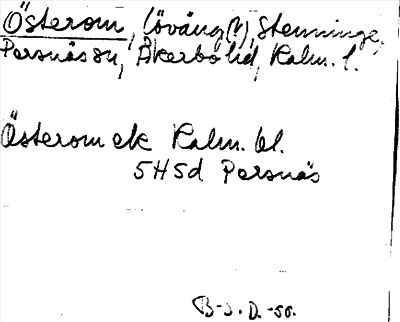 Österom, (öväng(?), Stenninge,
Persnäs sn, Åkerbo hd, Kalm. l.
Österom ek Kalm. bl.
5H5d Persnäs
B-s. D. -50.